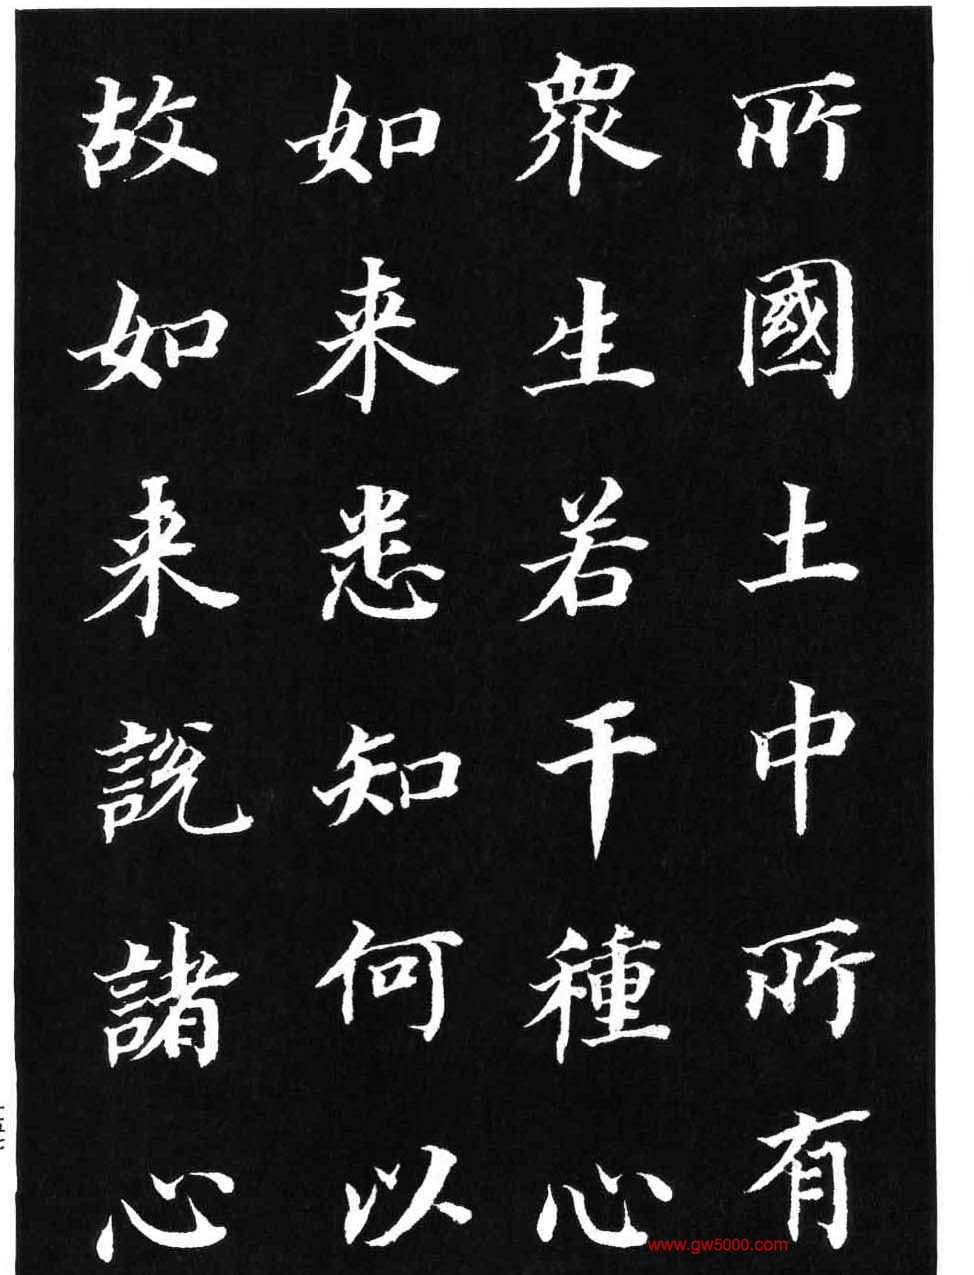 所國土中所有
衆生若干種心
如来悉知何以
故如来説諸心
www.gw5000.com